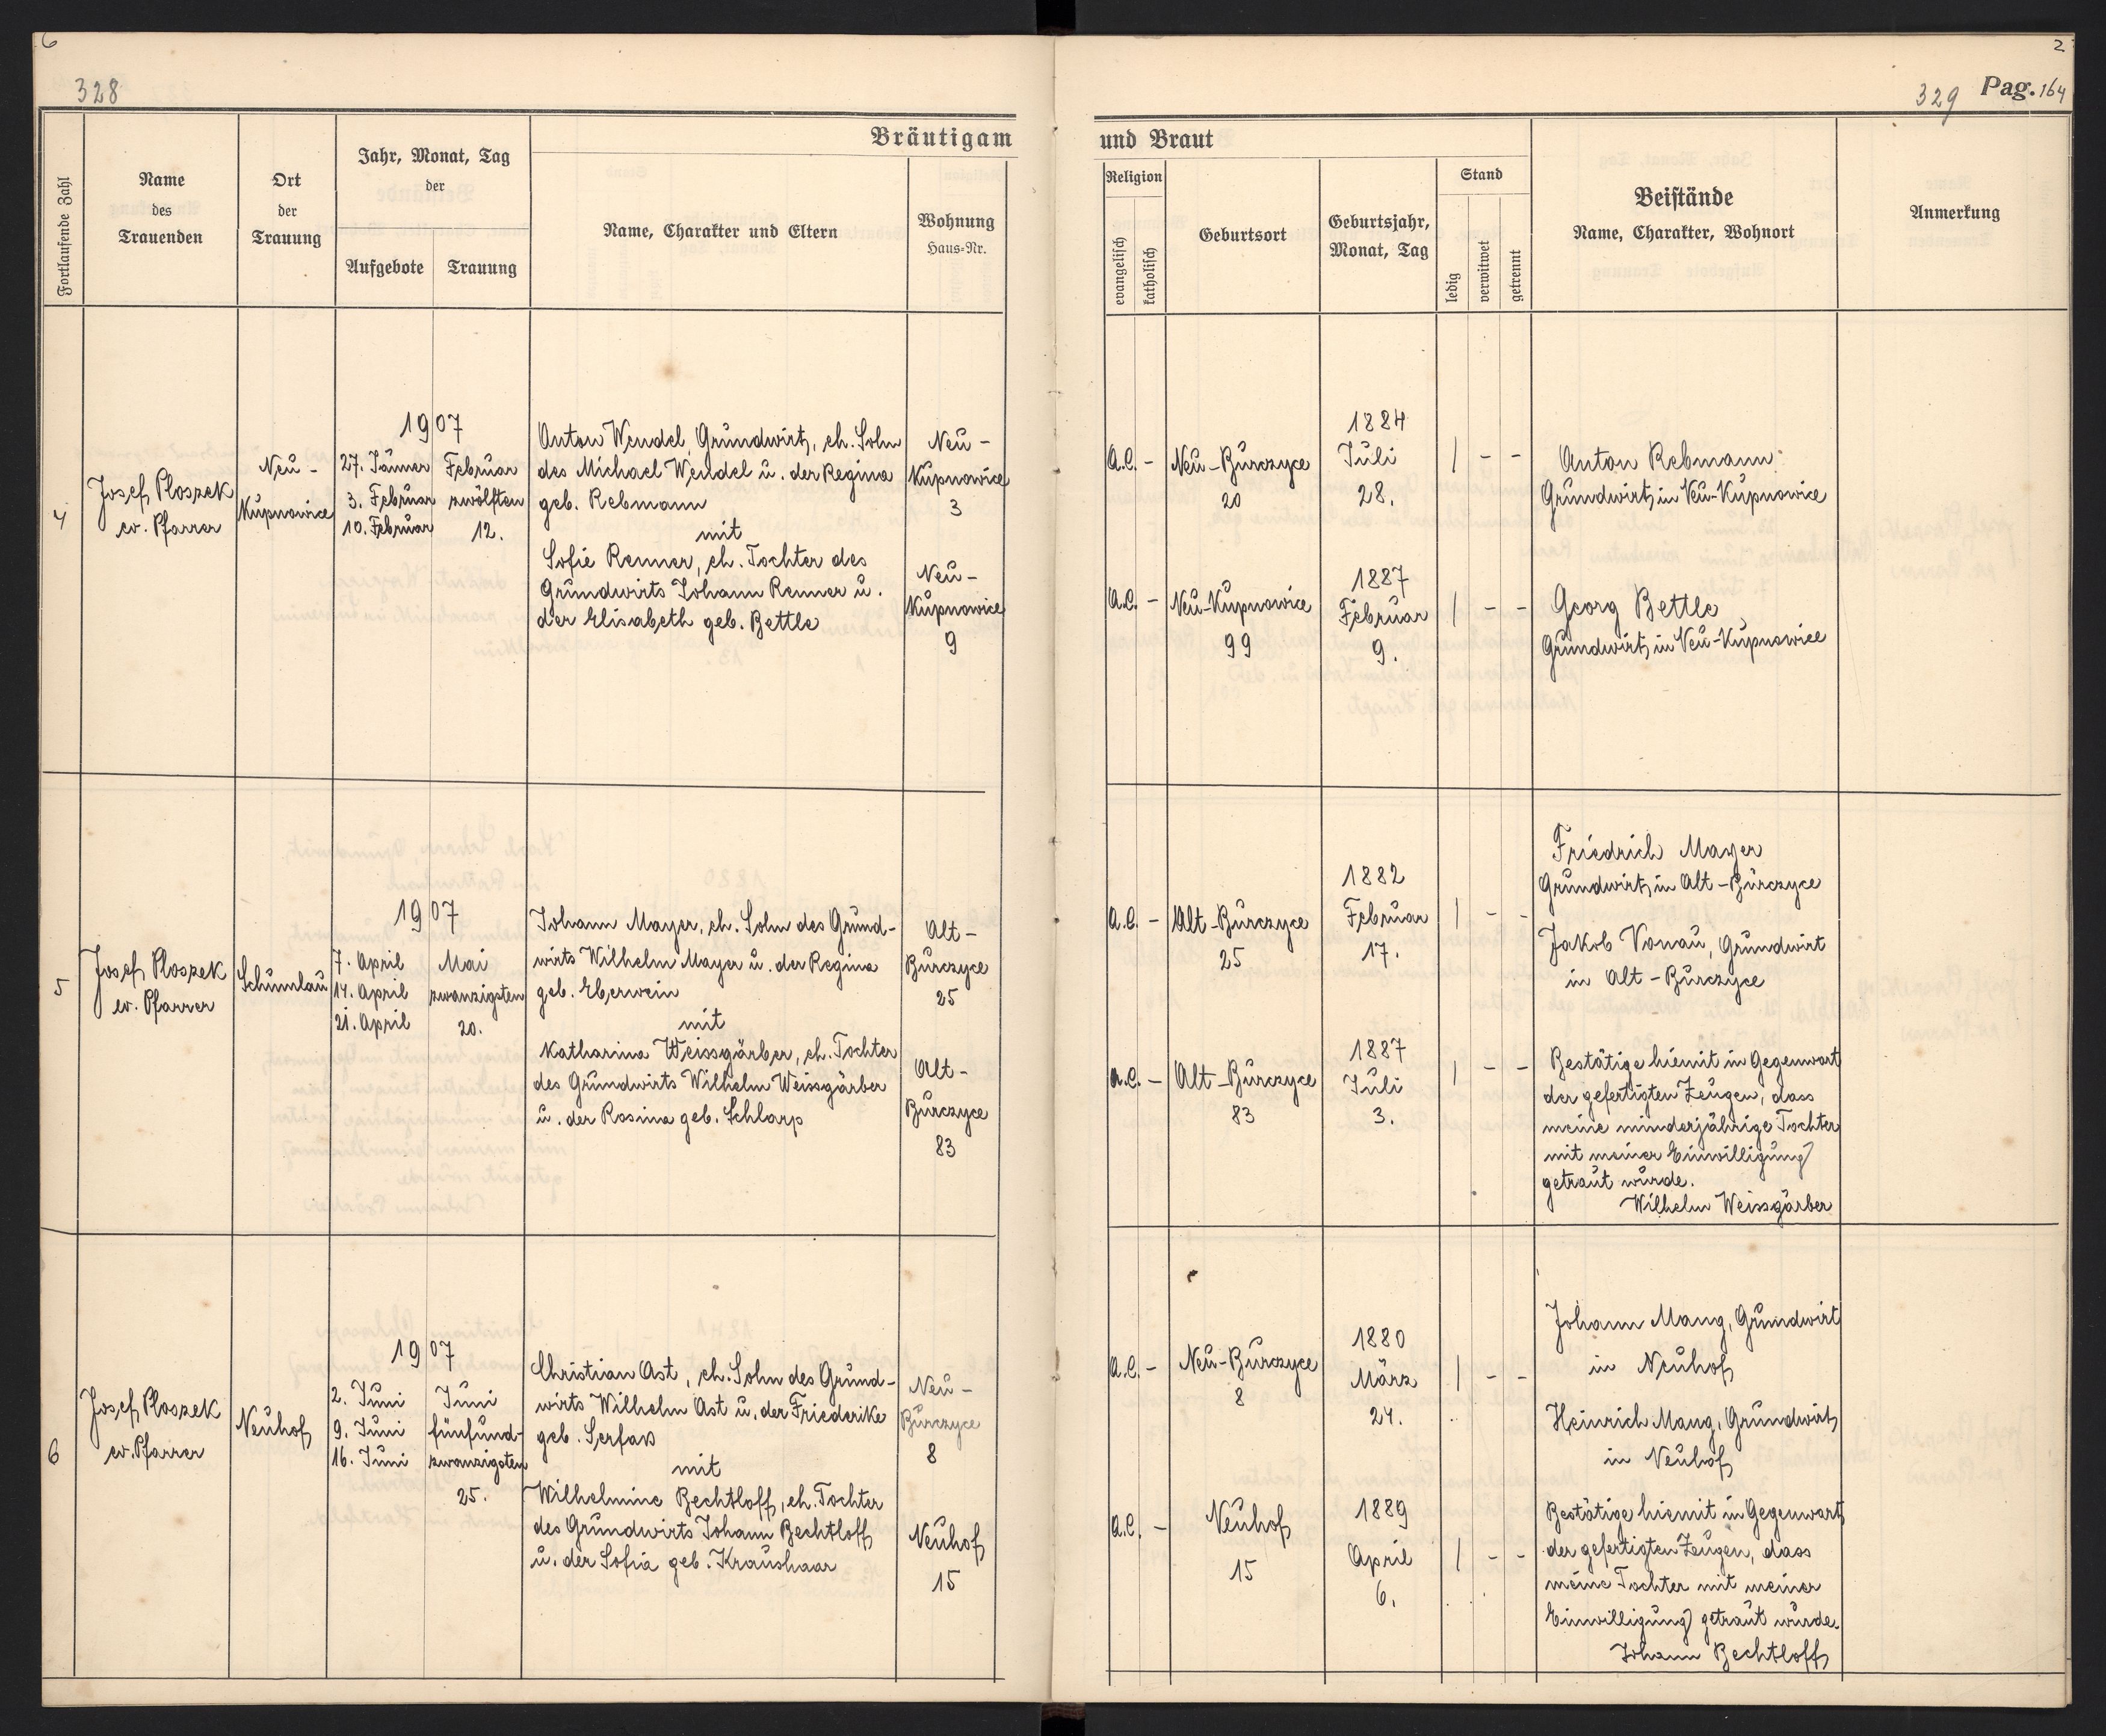 6
328
Fortlaufende Zahl
Name
des
Trauenden
Ort
der
Trauung
Jahr, Monat, Tag
der
Aufgebote
Trauung
Bräutigam
Name, Charakter und Eltern
Wohnung
Haus-Nr.
4
Josef Ploszek
ev. Pfarrer
Neu-
Kupnowice
1907
27. Jänner
3. Februar
10. Februar
Februar
zwölften
12.
Anton Wendel, Grundwirt, eh. Sohn
des Michael Wendel u. der Regina
geb. Rebmann
mit
Sofie Renner, eh. Tochter des
Grundwirts Johann Renner u.
der Elisabeth geb. Bettle
Neu-
Kupnowice
3
Neu-
Kupnowice
9
5
Josef Ploszek
ev. Pfarrer
Schumlau
1907
7. April
14. April
21. April
Mai
zwanzigsten
20.
Johann Mayer, eh. Sohn des Grund-
wirts Wilhelm Mayer u. der Regina
geb. Eberwein
mit
Katharina Weissgärber, eh. Tochter
des Grundwirts Wilhelm Weissgärber
u. der Rosina geb. Schlarp
Alt-
Burczyce
25
Alt-
Burczyce
83
6
Josef Ploszek
ev. Pfarrer
Neuhof
1907
2. Juni
9. Juni
16. Juni
Juni
fünfund-
zwanzigsten
25.
Christian Ast, eh. Sohn des Grund-
wirts Wilhelm Ast u. der Friederike
geb. Serfass
mit
Wilhelmine Bechtloff, eh. Tochter
des Grundwirts Johann Bechtloff
u. der Sofia geb. Kraushaar
Neu-
Burczyce
8
Neuhof
15
2
329 Pag. 164
und Braut
Religion
evangelisch
katholisch
Geburtsort
Geburtsjahr,
Monat, Tag
Stand
ledig
verwitwet
getrennt
Beistände
Name, Charakter, Wohnort
Anmerkung
a.C. -
Neu-Burczyce
20
1884
Juli
28.
| - -
Anton Rebmann
Grundwirt, in Neu-Kupnowice
a.C. -
Neu-Kupnowice
99
1887
Februar
9.
| - -
Georg Bettle
Grundwirt, in Neu-Kupnowice
a.C. -
Alt-Burczyce
25
1882
Februar
17.
| - -
Friedrich Mayer
Grundwirt, in Alt-Burczyce
Jakob Vonau, Grundwirt
in Alt-Burczyce
a.C. -
Alt-Burczyce
83
1887
Juli
3.
| - -
Bestätige hiemit in Gegenwart
der gefertigten Zeugen, dass
meine minderjährige Tochter
mit meiner Einwilligung
getraut wurde.
Wilhelm Weissgärber
a.C. -
Neu-Burczyce
8
1880
März
24.
| - -
Johann Mang, Grundwirt
in Neuhof
Heinrich Mang, Grundwirt,
in Neuhof
a.C. -
Neuhof
15
1889
April
6.
| - -
Bestätige hiemit in Gegenwart
der gefertigten Zeugen, dass
meine Tochter mit meiner
Einwilligung getraut wurde.
Johann Bechtloff